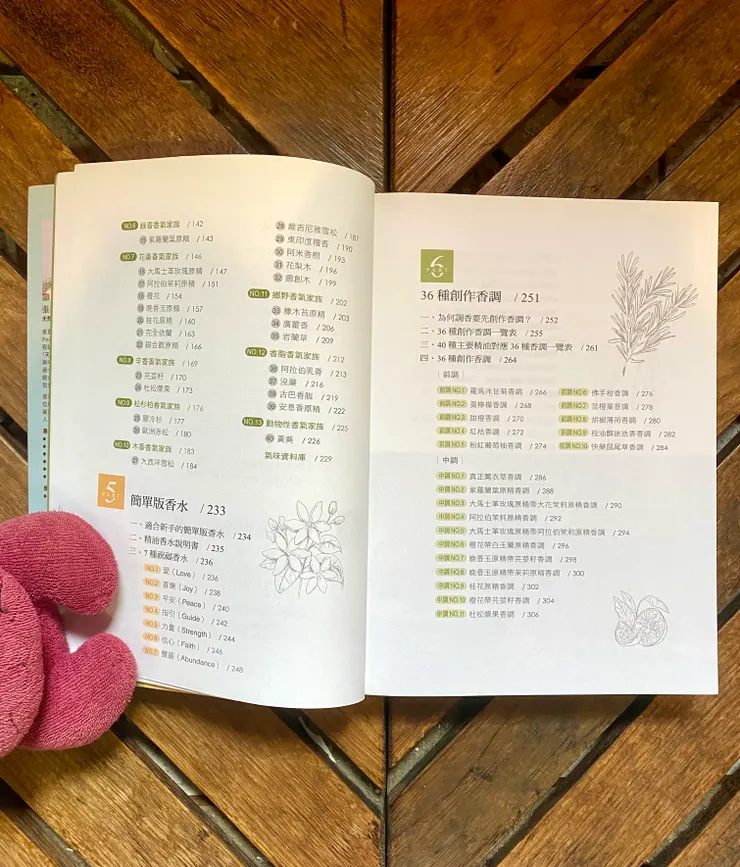 NO.6 綠香香氣家族 / 142
15 紫羅蘭葉原精 / 143
NO.7 花香香氣家族 / 146
16 大馬士革玫瑰原精 / 147
17 阿拉伯茉莉原精 / 151
18 橙花 / 154
19 晚香玉原精 / 157
20 桂花原精 / 160
21 完全依蘭 / 163
22 銀合歡原精 / 166
NO.8 辛香香氣家族 / 169
23 芫荽籽 / 170
24 杜松漿果 / 173
NO.9 松杉柏香氣家族 / 176
25 膠冷杉 / 177
26 歐洲赤松 / 180
NO.10 木香香氣家族 / 183
27 大西洋雪松 / 184
28 維吉尼亞雪松 / 187
29 東印度檀香 / 190
30 阿米香樹 / 193
31 花梨木 / 196
32 癒創木 / 199
NO.11 鄉野香氣家族 / 202
33 橡木苔原精 / 203
34 廣藿香 / 206
35 岩蘭草 / 209
NO.12 香脂香氣家族 / 212
36 阿拉伯乳香 / 213
37 沒藥 / 216
38 古巴香脂 / 219
39 安息香原精 / 222
NO.13 動物性香氣家族 / 225
40 黃葵 / 226
氣味資料庫 / 229
5
PART
簡單版香水 / 233
一、適合新手的簡單版香水 / 234
二、精油香水說明書 / 235
三、7 種祝福香水 / 236
NO.1 愛（Love） / 236
NO.2 喜樂（Joy） / 238
NO.3 平安（Peace） / 240
NO.4 指引（Guide） / 242
NO.5 力量（Strength） / 244
NO.6 信心（Faith） / 246
NO.7 豐盛（Abundance） / 248
6
PART
36 種創作香調 / 251
一、為何調香要先創作香調？ / 252
二、36 種創作香調一覽表 / 255
三、40 種主要精油對應 36 種香調一覽表 / 261
四、36 種創作香調 / 264
｜前調｜
前調 NO.1 羅馬洋甘菊香調 / 266
前調 NO.2 黃檸檬香調 / 268
前調 NO.3 甜橙香調 / 270
前調 NO.4 紅桔香調 / 272
前調 NO.5 粉紅葡萄柚香調 / 274
前調 NO.6 佛手柑香調 / 276
前調 NO.7 苦橙葉香調 / 278
前調 NO.8 胡椒薄荷香調 / 280
前調 NO.9 桉油醇迷迭香香調 / 282
前調 NO.10 快樂鼠尾草香調 / 284
｜中調｜
中調 NO.1 真正薰衣草香調 / 286
中調 NO.2 紫羅蘭葉原精香調 / 288
中調 NO.3 大馬士革玫瑰原精帶大花茉莉原精香調 / 290
中調 NO.4 阿拉伯茉莉原精香調 / 292
中調 NO.5 大馬士革玫瑰原精帶阿拉伯茉莉原精香調 / 294
中調 NO.6 橙花帶白玉蘭原精香調 / 296
中調 NO.7 晚香玉原精帶芫荽籽香調 / 298
中調 NO.8 晚香玉原精帶茉莉原精香調 / 300
中調 NO.9 桂花原精香調 / 302
中調 NO.10 橙花帶芫荽籽香調 / 304
中調 NO.11 杜松漿果香調 / 306